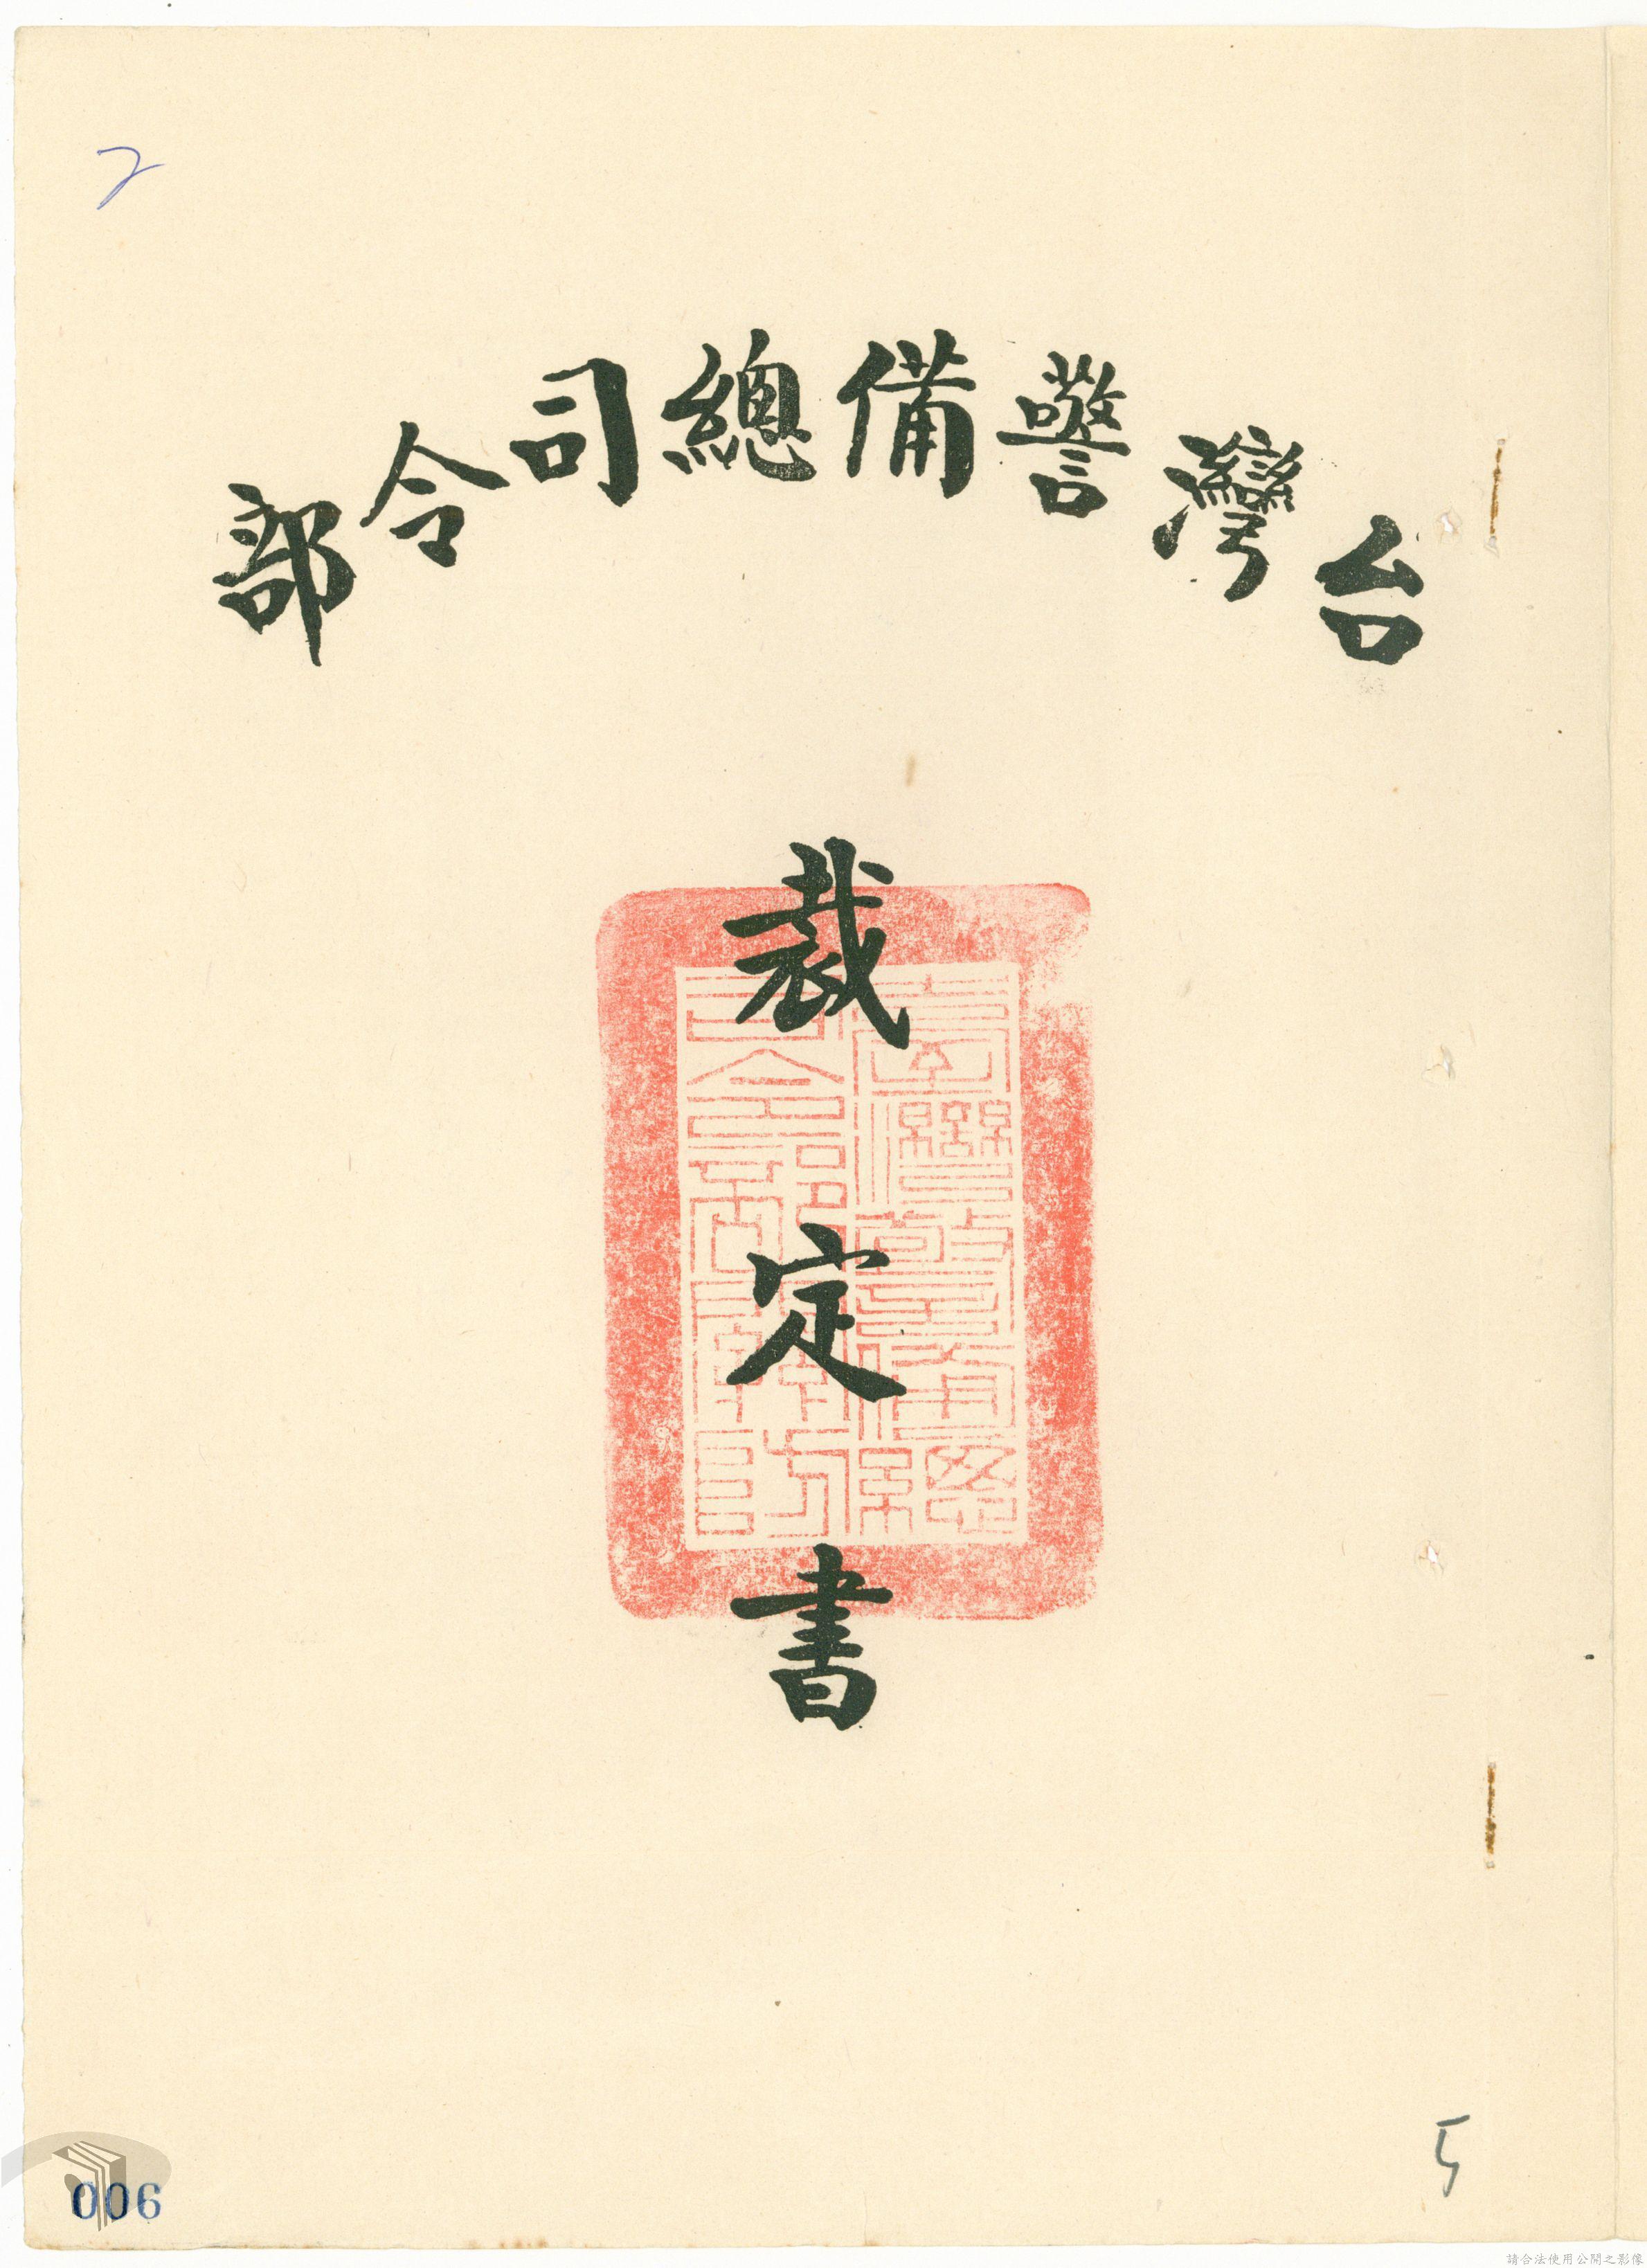 台灣警備總司令部
裁定書
臺灣警備總
司令部軍法處關防
2
006
5
請合法使用公開之影像